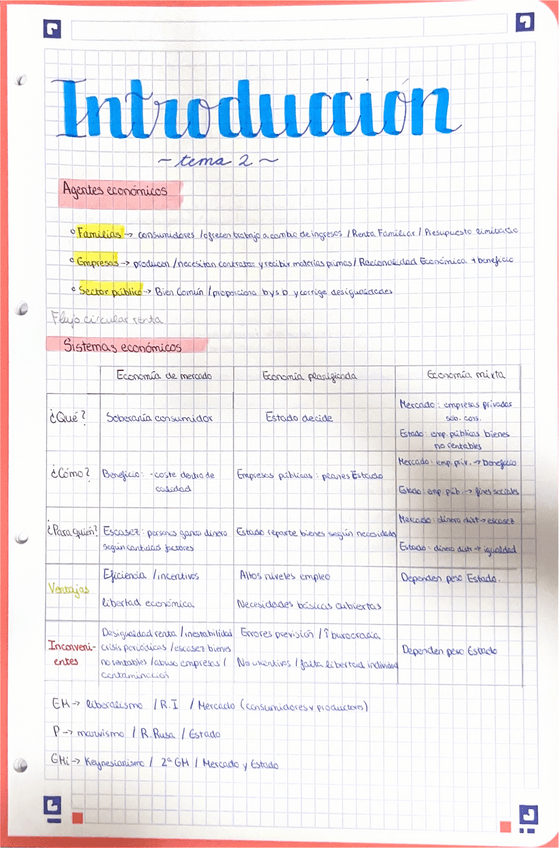 Introducción
~ tema 2 ~
Agentes económicos
° Familias → consumidores / ofrecen trabajo a cambio de ingresos / Renta Familiar / Presupuesto limitado
° Empresas → producen / necesitan contratar y recibir materias primas / Racionalidad Económica + beneficio
° Sector público → Bien Común / proporciona b y s b y corrige desigualdades
Flujo circular renta
Sistemas económicos
Economía de mercado Economía planificada Economía mixta
¿Qué? Soberanía consumidor Estado decide Mercado: empresas privadas
sob. cons.
Estado: emp. públicas bienes
no rentables
¿Cómo? Beneficio: -coste dentro de
calidad
Empresas públicas: planes Estado
Mercado: emp. priv. → beneficio
Estado: emp. púb. → fines sociales
¿Para quién? Escasez: personas ganan dinero
según cantidad factores
Estado reparte bienes según necesidad
Mercado: dinero dist → escasez
Estado: dinero distr → igualdad
Ventajas
Eficiencia / incentivos
libertad económica
Altos niveles empleo
Necesidades básicas cubiertas
Dependen peso Estado.
Inconveni-
entes
Desigualdad renta / inestabilidad
crisis periódicas / escasez bienes
no rentables / abuso empresas /
contaminación
Errores previsión / ↑ burocracia
No incentivos / falta libertad individual
Dependen peso Estado
EM → liberalismo / R.I / Mercado (consumidores y productores)
P → marxismo / R. Rusa / Estado
EMi → Keynesionismo / 2ª GM / Mercado y Estado